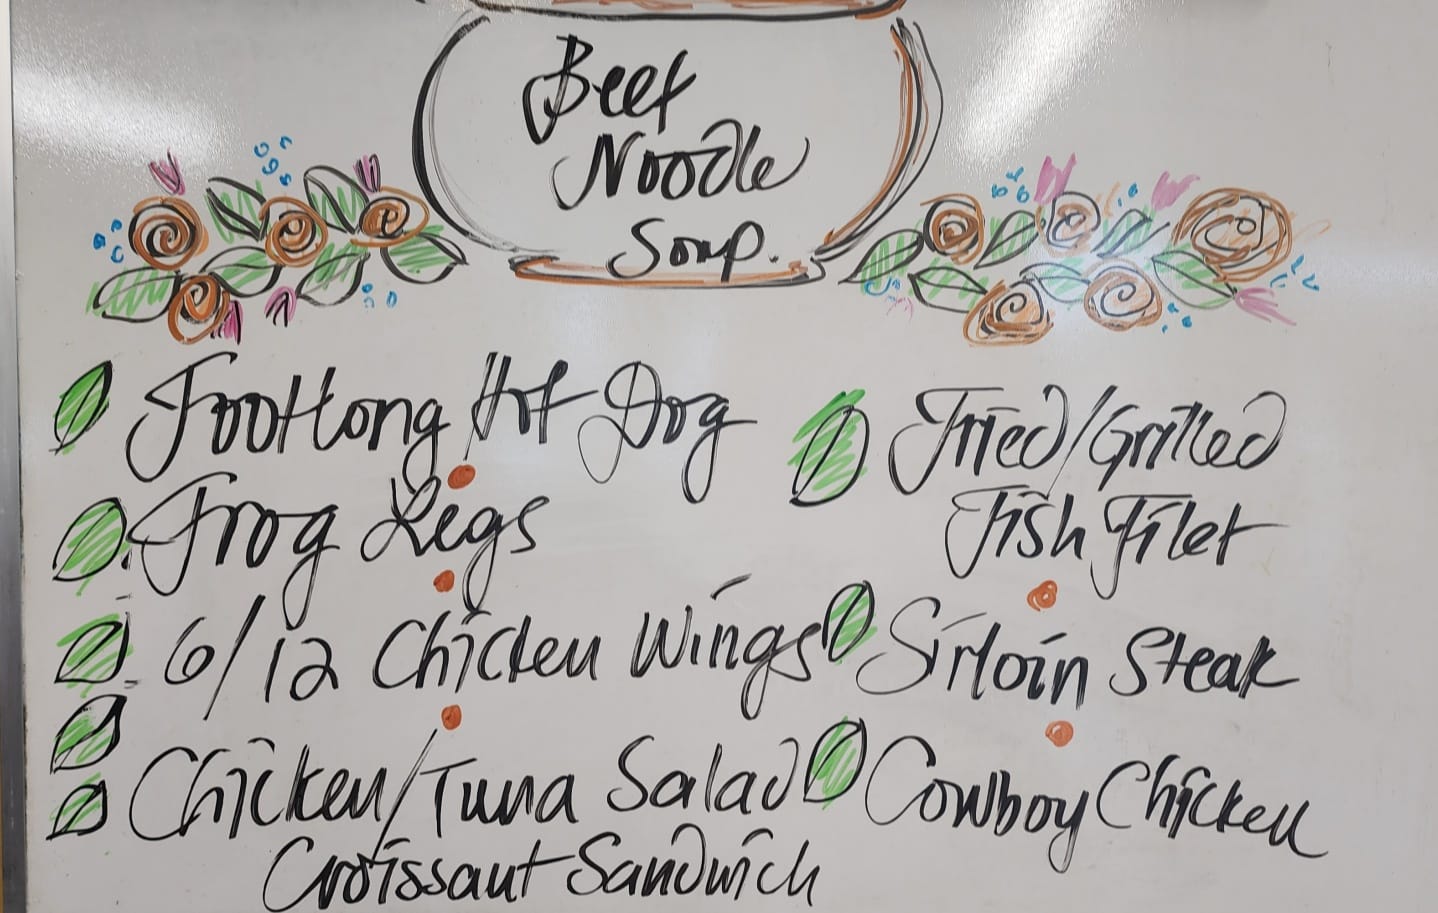 Beef
Noodle
Soup.
Footlong Hot Dog
Frog Legs
6/12 Chicken Wings
Chicken/Tuna Salad
Croissant Sandwich
Fried/Grilled
Fish Filet
Sirloin Steak
Cowboy Chicken